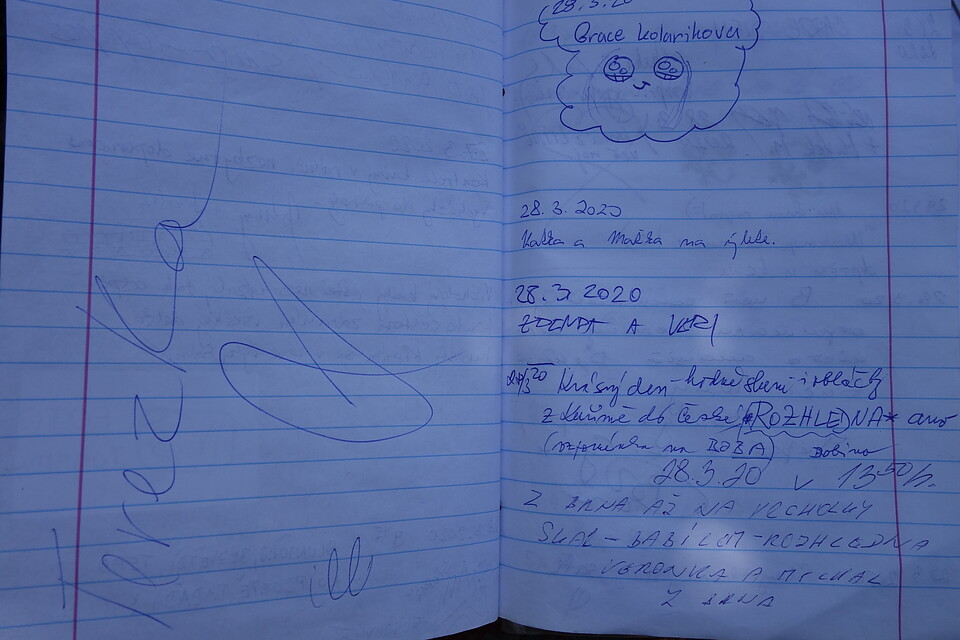 TerezKa
28.3.20
Grace Kolarikova
28.3.2020
Katka a Maťka na výletě.
28.3.2020
ZDENDA A VERI
28/3 20 Krásný den - hodně sluní i obláčky
z Kuřimě do České *ROZHLEDNA* ano
(vzpomínka na BOBA)
28.3.20 v 13:50 h.
Z BRNA AŽ NA VRCHOLKY
SKAL - BABÍ LOM - ROZHLEDNA
VERONIKA A MICHAL
Z BRNA